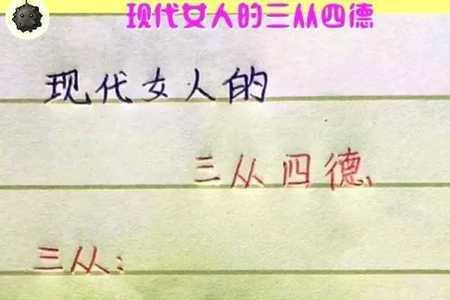 现代女人的三从四德
现代女人的
三从四德、
三从：